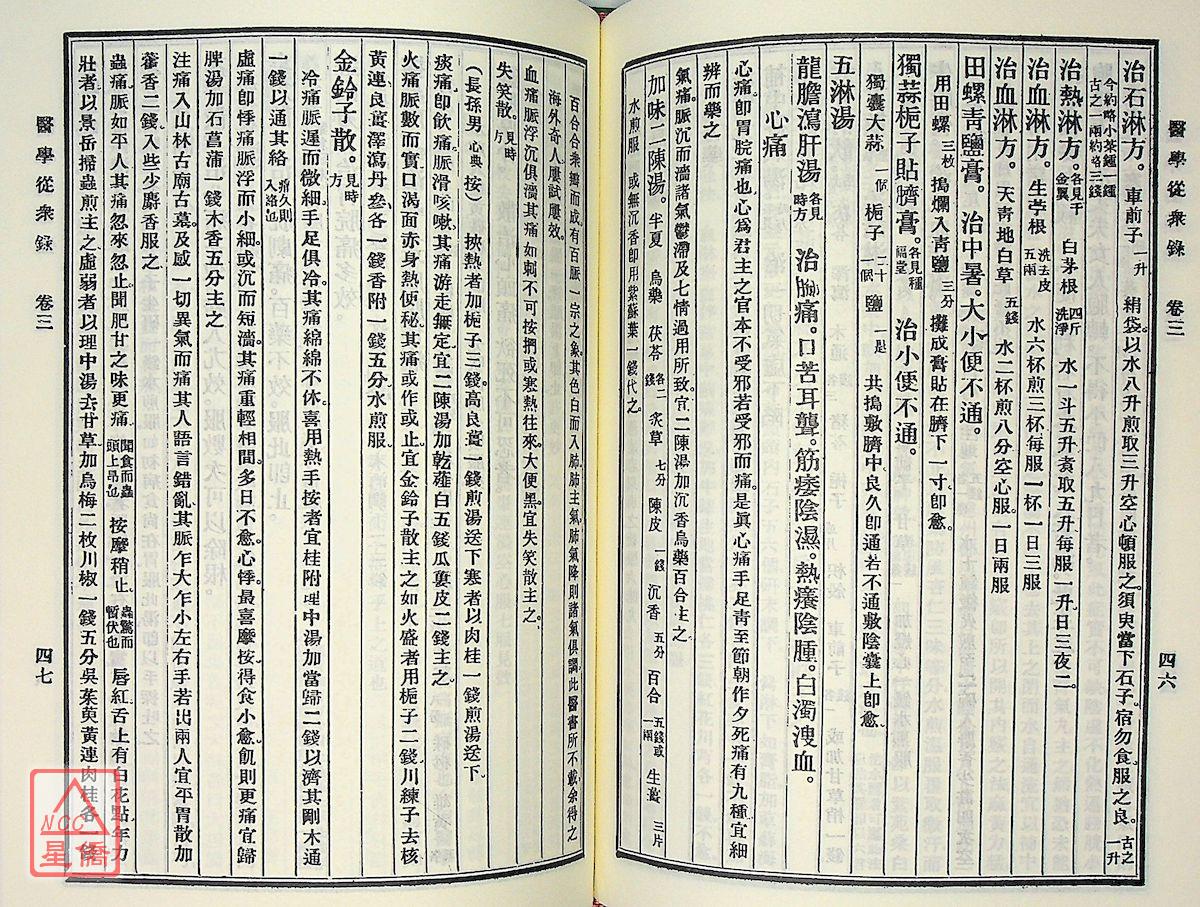 醫學從衆錄 卷三 四六
治石淋方。車前子一升 絹袋以水八升煎取三升空心頓服之。須臾當下石子。宿勿食。服之良。古之一升
今約略小茶鍾一鍾古之一兩約略三錢
治熱淋方。各見千金翼 白茅根四斤洗淨 水一斗五升煮取五升。每服一升日三夜二。
治血淋方。生苧根洗去皮五兩 水六杯煎三杯每服一杯一日三服
治血淋方。天青地白草五錢 水二杯煎八分空心服。一日兩服
田螺青鹽膏。治中暑。大小便不通。
用田螺三枚 搗爛入青鹽三分 攤成膏貼在臍下一寸。卽愈。
獨蒜梔子貼臍膏。各見種福堂 治小便不通。
獨囊大蒜一個 梔子二十一個 鹽一是 共搗敷臍中。良久卽通若不通敷陰囊上卽愈
五淋湯
龍膽瀉肝湯各見時方 治胸痛。口苦耳聾。筋痿陰濕。熱癢陰腫。白濁溲血。
心痛
心痛卽胃脘痛也。心爲君主之官本不受邪若受邪而痛。是眞心痛手足青至節朝作夕死痛有九種宜細
辨而藥之
氣痛。脈沉而濇諸氣鬱滯及七情過用所致。宜二陳湯加沉香烏藥百合主之
加味二陳湯。半夏 烏藥 茯苓各二錢 炙草七分 陳皮一錢 沉香五分 百合五錢或一兩 生薑三片
水煎服 或無沉香卽用紫蘇葉一錢代之。
百合合衆瓣而成有百脈一宗之象。其色白而入肺。肺主氣。肺氣降則諸氣俱調。此醫書所不載。余得之
海外奇人屢試屢效。
血痛脈浮沉俱濇其痛如刺不可按捫或寒熱往來。大便黑。宜失笑散主之。
失笑散。見時方
（長孫男心典按）挾熱者加梔子三錢。高良薑一錢煎湯送下寒者以肉桂一錢煎湯送下
痰痛卽飮痛。脈滑咳嗽其痛游走無定。宜二陳湯加乾薤白五錢瓜蔞皮二錢主之。
火痛脈數而實口渴面赤身熱便秘。其痛或作或止。宜金鈴子散主之如火盛者用梔子二錢川練子去核
黃連良薑澤瀉丹參各一錢香附一錢五分。水煎服
金鈴子散。見時方
冷痛脈遲而微細。手足俱冷。其痛綿綿不休。喜用熱手按者宜桂附理中湯加當歸二錢以濟其剛木通
一錢以通其絡痛久則入絡也
虛痛卽悸痛脈浮而小細。或沉而短濇。其痛重輕相間。多日不愈。心悸。最喜摩按得食小愈飢則更痛宜歸
脾湯加石菖蒲一錢木香五分主之
注痛入山林古廟古墓。及感一切異氣而痛其人語言錯亂。其脈乍大乍小左右手若出兩人宜平胃散加
藿香二錢。入些少麝香服之
蟲痛脈如平人其痛忽來忽止。聞肥甘之味更痛聞食而蟲頭上昂也 按摩稍止。蟲驚而暫伏也 唇紅舌上有白花點年力
壯者以景岳掃蟲煎主之。虛弱者以理中湯去甘草加烏梅二枚川椒一錢五分吳茱萸黃連肉桂各一錢
醫學從衆錄 卷三 四七
NCC
星僑